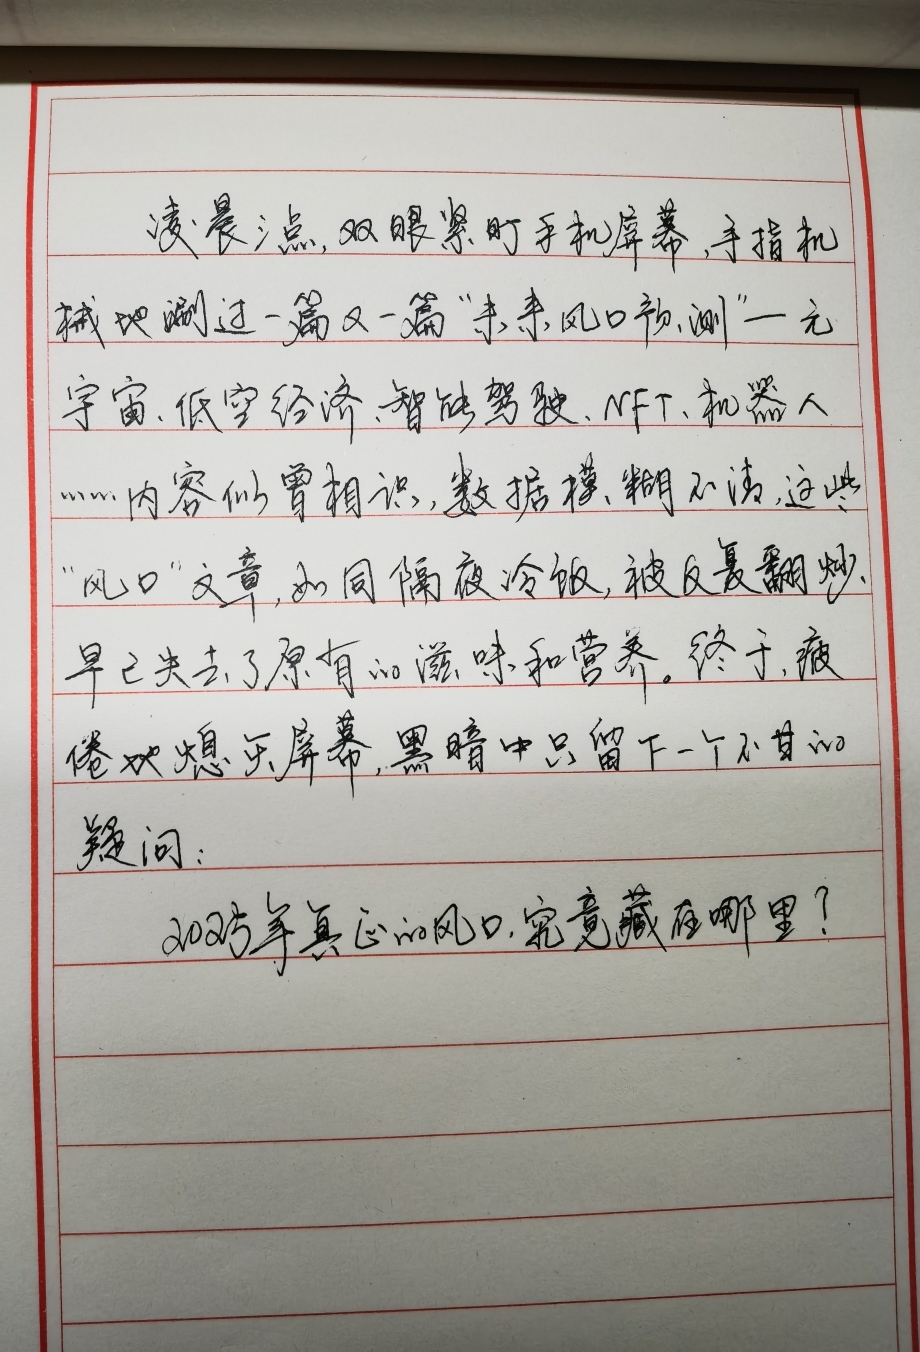 凌晨三点，双眼紧盯手机屏幕，手指机
械地涮过一篇又一篇“未来风口预测”—元
宇宙、低空经济、智能驾驶、NFT、机器人
……内容似曾相识，数据模糊不清，这些
“风口”文章，如同隔夜冷饭，被反复翻炒、
早已失去了原有的滋味和营养。终于，疲
倦地熄灭屏幕，黑暗中只留下一个不甘的
疑问：
2025年真正的风口，究竟藏在哪里？